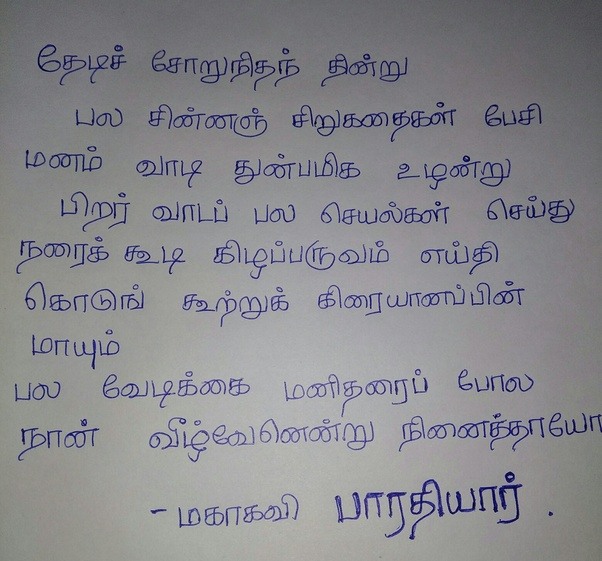 தேடிச் சோறுநிதந் தின்று
பல சின்னஞ் சிறுகதைகள் பேசி
மனம் வாடி துன்பமிக உழன்று
பிறர் வாடப் பல செயல்கள் செய்து
நரைக் கூடி கிழப்பருவம் எய்தி
கொடுங் கூற்றுக் கிரையானப்பின்
மாயும்
பல வேடிக்கை மனிதரைப் போல
நான் வீழ்வேனென்று நினைத்தாயோ
- மகாகவி பாரதியார்.